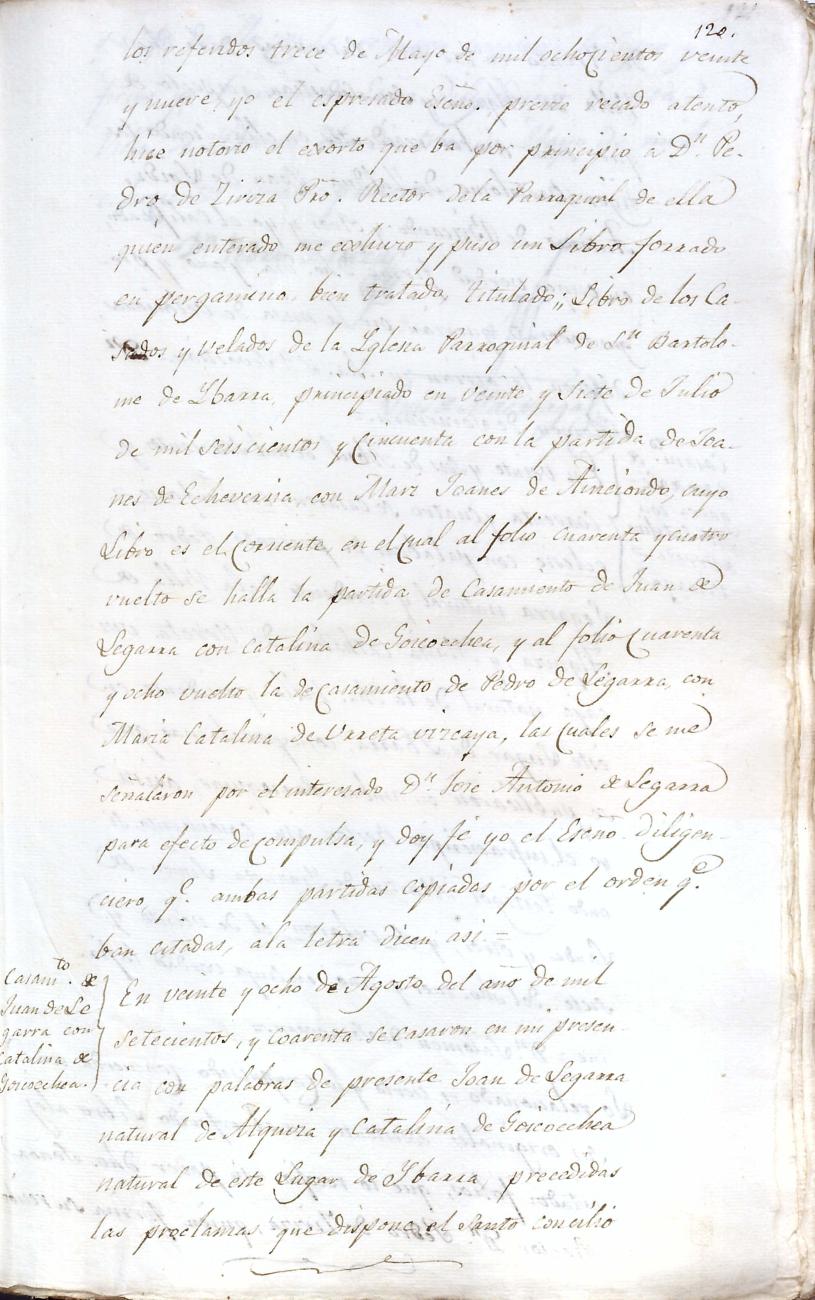 120.
los referidos trece de Mayo de mil ochocientos veinte
y nueve, yo el espresado Esño. previo recado atento,
hice notorio el exorto que ba por principio à Dn. Pe-
dro de Ziriza Pro. Rector dela Parroquial de ella
quien enterado me exhivió y puso un Libro forrado
en pergamino, bien tratado, titulado; Libro de los Ca-
sados y velados de la Yglesia Parroquial de Sn. Bartolo-
me de Ybarra, principiado en veinte y siete de Julio
de mil seiscientos y Cincuenta con la partida de Joa-
nes de Echeverria, con Mari Joanes de Ainciondo, cuyo
Libro es el Corriente, en el qual al folio cuarenta y cuatro
vuelto se halla la partida de Casamiento de Juan de
Legarra con Catalina de Goicoechea, y al folio Cuarenta
y ocho vuelto la de casamiento de Pedro de Legarra, con
Maria Catalina de Urreta vizcaya, las cuales se me
señalaron por el interesado Dn. Jose Antonio de Legarra
para efecto de compulsa, y doy fe yo el Esño. diligen-
ciero, qe. ambas partidas copiadas por el orden qe.
ban citadas, ala letra dicen asi =
Casamto. de
Juan de Le
garra con
Catalina de
Goicoechea.
En veinte y ocho de Agosto del año de mil
setecientos, y Coarenta se casaron en mi presen-
cia con palabras de presente Joan de Legarra
natural de Alquiza y Catalina de Goicoechea
natural de este Lugar de Ybarra, precedidas
las proclamas que dispone el Santo concilio